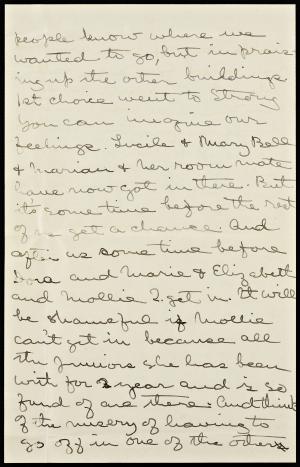 people know where we
wanted to go, but in prais-
ing up the other buildings
1st choice went to Strong
You can imagine our
feelings. Lucile & Mary Bell
& Marian & her room mate
have now got in there. But
it's some time before the rest
of us get a chance. And
after us some time before
and Marie & Elizabeth
and Mollie I. get in. It will
be shameful if Mollie
can't get in because all
the Juniors she has been
with for 2 year and is so
fond of are there. And think
of the misery of having to
go off in one of the others